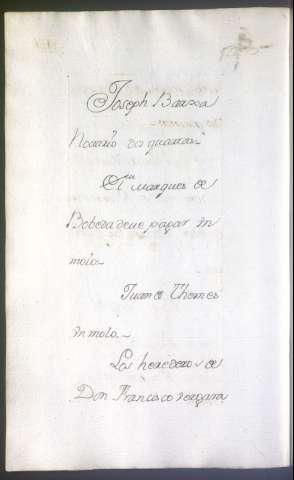 Joseph Barxa
Notario dos quarras
El Marques de
Bobeda deue pagar Un
moio
Juan de Thomes
Un moio
Los herederos de
Don Francisco Vergara